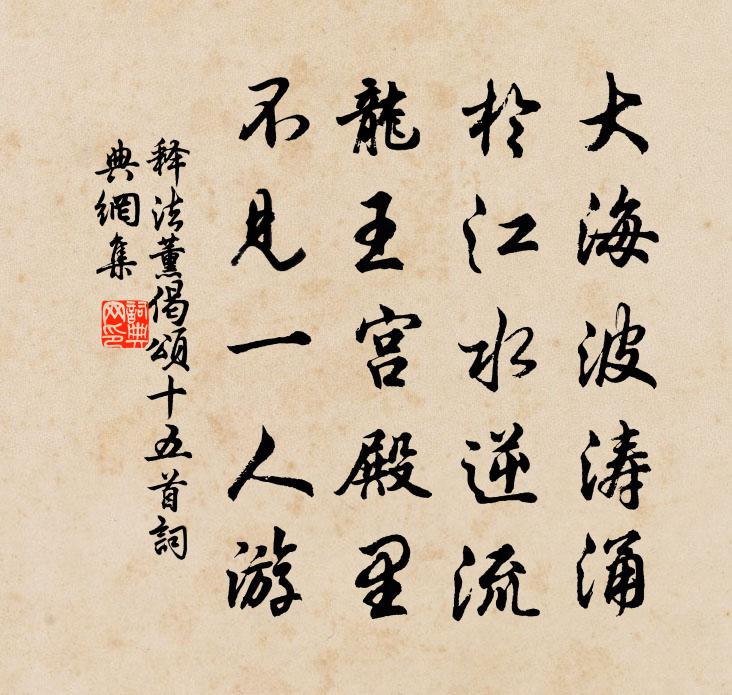 大海波涛涌
於江水逆流
龍王宫殿里
不見一人游
释法薰偈頌十五首詞
典網集
詞典
网印